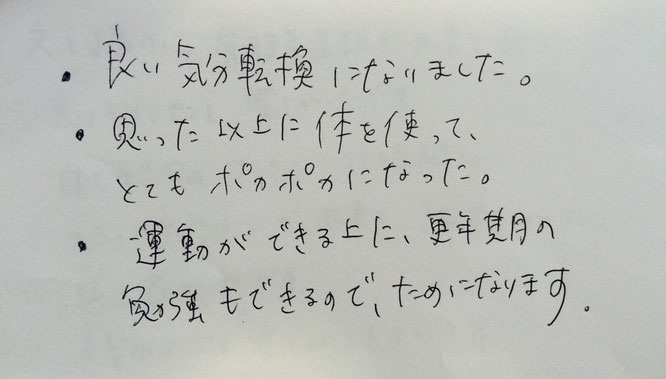 ・良い気分転換になりました。
・思った以上に体を使って、
とてもポカポカになった。
・運動ができる上に、更年期の
勉強もできるので、ためになります。